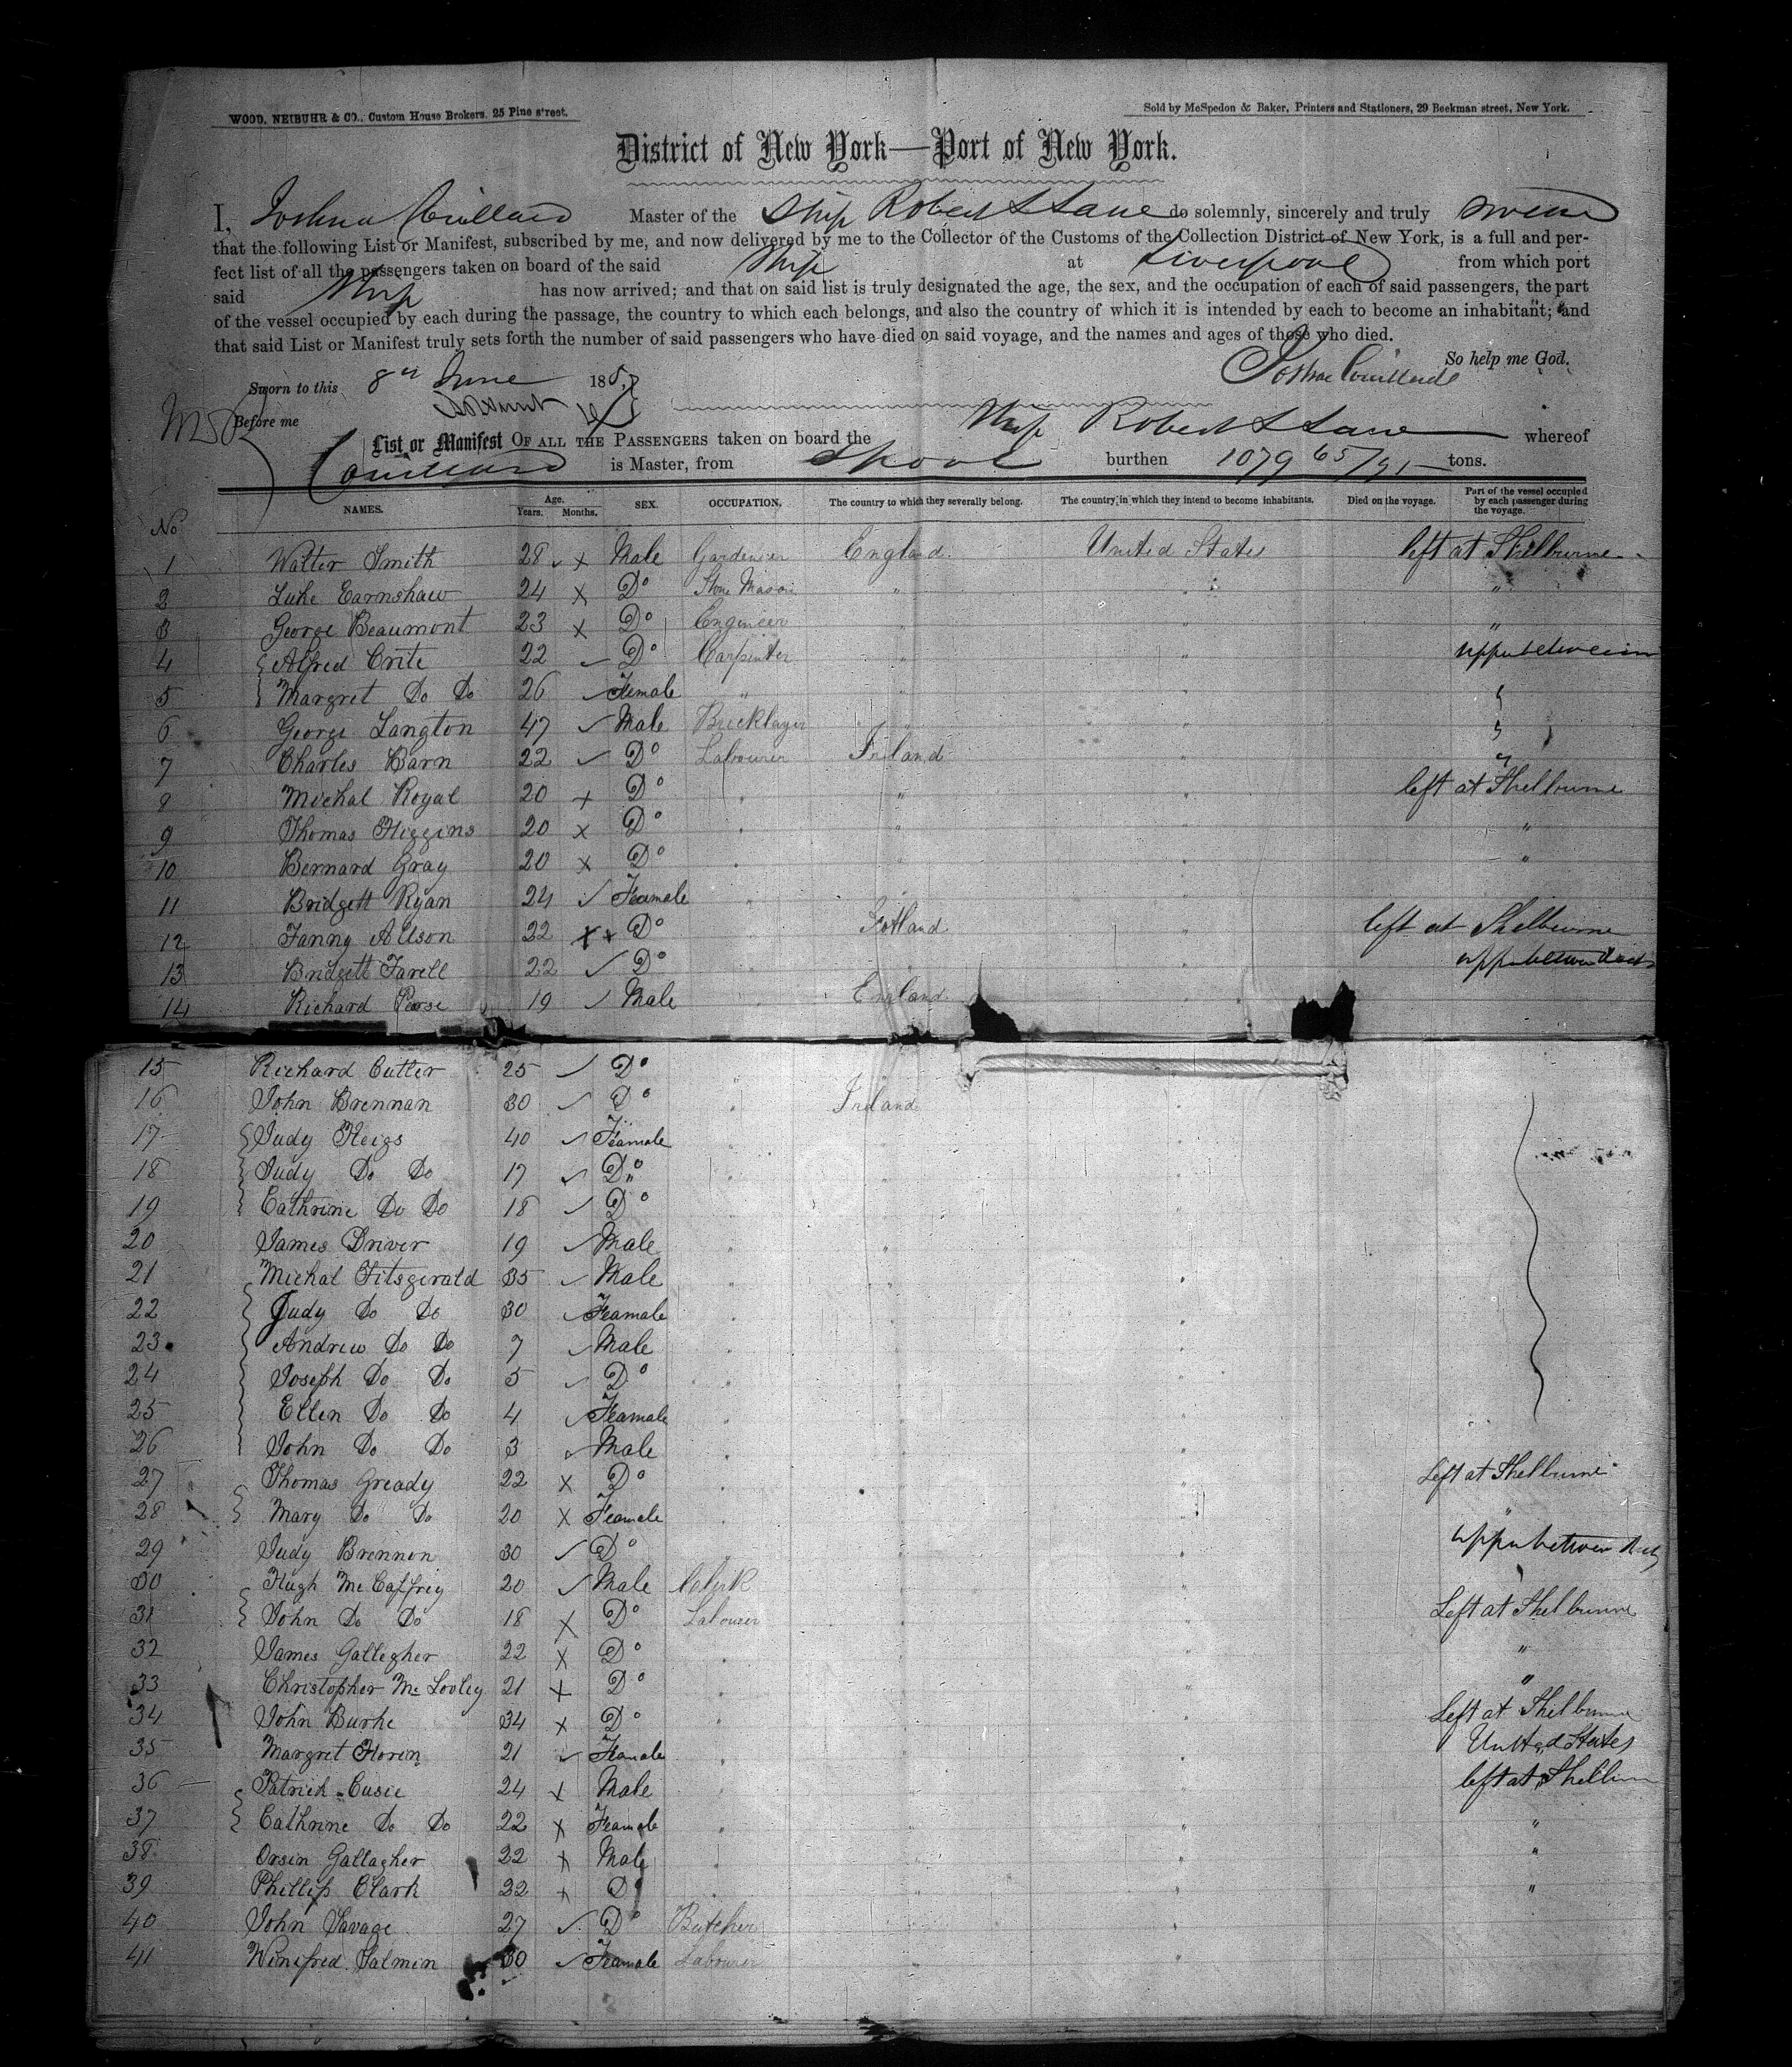 WOOD, NEIBUHR & CO., Custom House Brokers, 25 Pine street.
Sold by McSpedon & Baker, Printers and Stationers, 29 Beekman street, New York.
District of New York—Port of New York.
I, Joshua Couillard Master of the Ship Robert L Lane do solemnly, sincerely and truly swear
that the following List or Manifest, subscribed by me, and now delivered by me to the Collector of the Customs of the Collection District of New York, is a full and per-
fect list of all the passengers taken on board of the said Ship at Liverpool from which port
said Ship has now arrived; and that on said list is truly designated the age, the sex, and the occupation of each of said passengers, the part
of the vessel occupied by each during the passage, the country to which each belongs, and also the country of which it is intended by each to become an inhabitant; and
that said List or Manifest truly sets forth the number of said passengers who have died on said voyage, and the names and ages of those who died.
So help me God.
Sworn to this 8th June 185
Joshua Couillard
Before me
List or Manifest OF ALL THE PASSENGERS taken on board the Ship Robert L Lane whereof
Couillard is Master, from Lpool burthen 1079 65/91 tons.
No NAMES. Age. Years. Months. SEX. OCCUPATION. The country to which they severally belong. The country in which they intend to become inhabitants. Died on the voyage. Part of the vessel occupied by each passenger during the voyage.
1 Walter Smith 28 x Male Gardener England United States left at Shelburne
2 Luke Earnshaw 24 x Do Stone Mason " " "
3 George Beaumont 23 x Do Engineer " " "
4 Alfred Crite 22 Do Carpinter " " upper between
5 Margret Do Do 26 Female " " "
6 George Langton 47 Male Bricklayer " "
7 Charles Barn 22 Do Labourer Ireland "
8 Michal Royal 20 x Do " " " left at Shelburne
9 Thomas Higgins 20 x Do " " " "
10 Bernard Gray 20 x Do " " " "
11 Bridgett Ryan 24 Feamale " "
12 Fanny Allson 22 x x Do " Scotland " left at Shelburne
13 Bridgett Farell 22 Do " " upper between decks
14 Richard Perse 19 Male " England "
15 Richard Cutler 25 Do
16 John Brennan 30 Do " Ireland "
17 Judy Heigs 40 Feamale " "
18 Judy Do Do 17 Do " "
19 Cathrine Do Do 18 Do " "
20 James Driver 19 Male " " "
21 Michal Fitsgerald 35 Male " " "
22 Judy Do Do 30 Feamale " " "
23 Andrew Do Do 7 Male " " "
24 Joseph Do Do 5 Do " " "
25 Ellen Do Do 4 Feamale " " "
26 John Do Do 3 Male " " "
27 Thomas Gready 22 x Do " " Left at Shelburne
28 Mary Do Do 20 x Feamale " " "
29 Judy Brennen 30 Do " " upper between decks
30 Hugh McCaffrey 20 Male Calerk "
31 John Do Do 18 x Do Labourer " Left at Shelburne
32 James Gallegher 22 x Do " " "
33 Christopher Mc Looley 21 x Do " " "
34 John Burke 34 x Do " " Left at Shelburne
35 Margret Horin 21 Feamale " " United States
36 Patrick Cusic 24 x Male " " left at Shelburn
37 Cathrine Do Do 22 x Feamale " " "
38 Orsin Gallagher 22 x Male " " "
39 Phillip Clark 22 x Do " " "
40 John Savage 27 Do Butcher "
41 Winifred Salmin 30 Feamale Labourer "